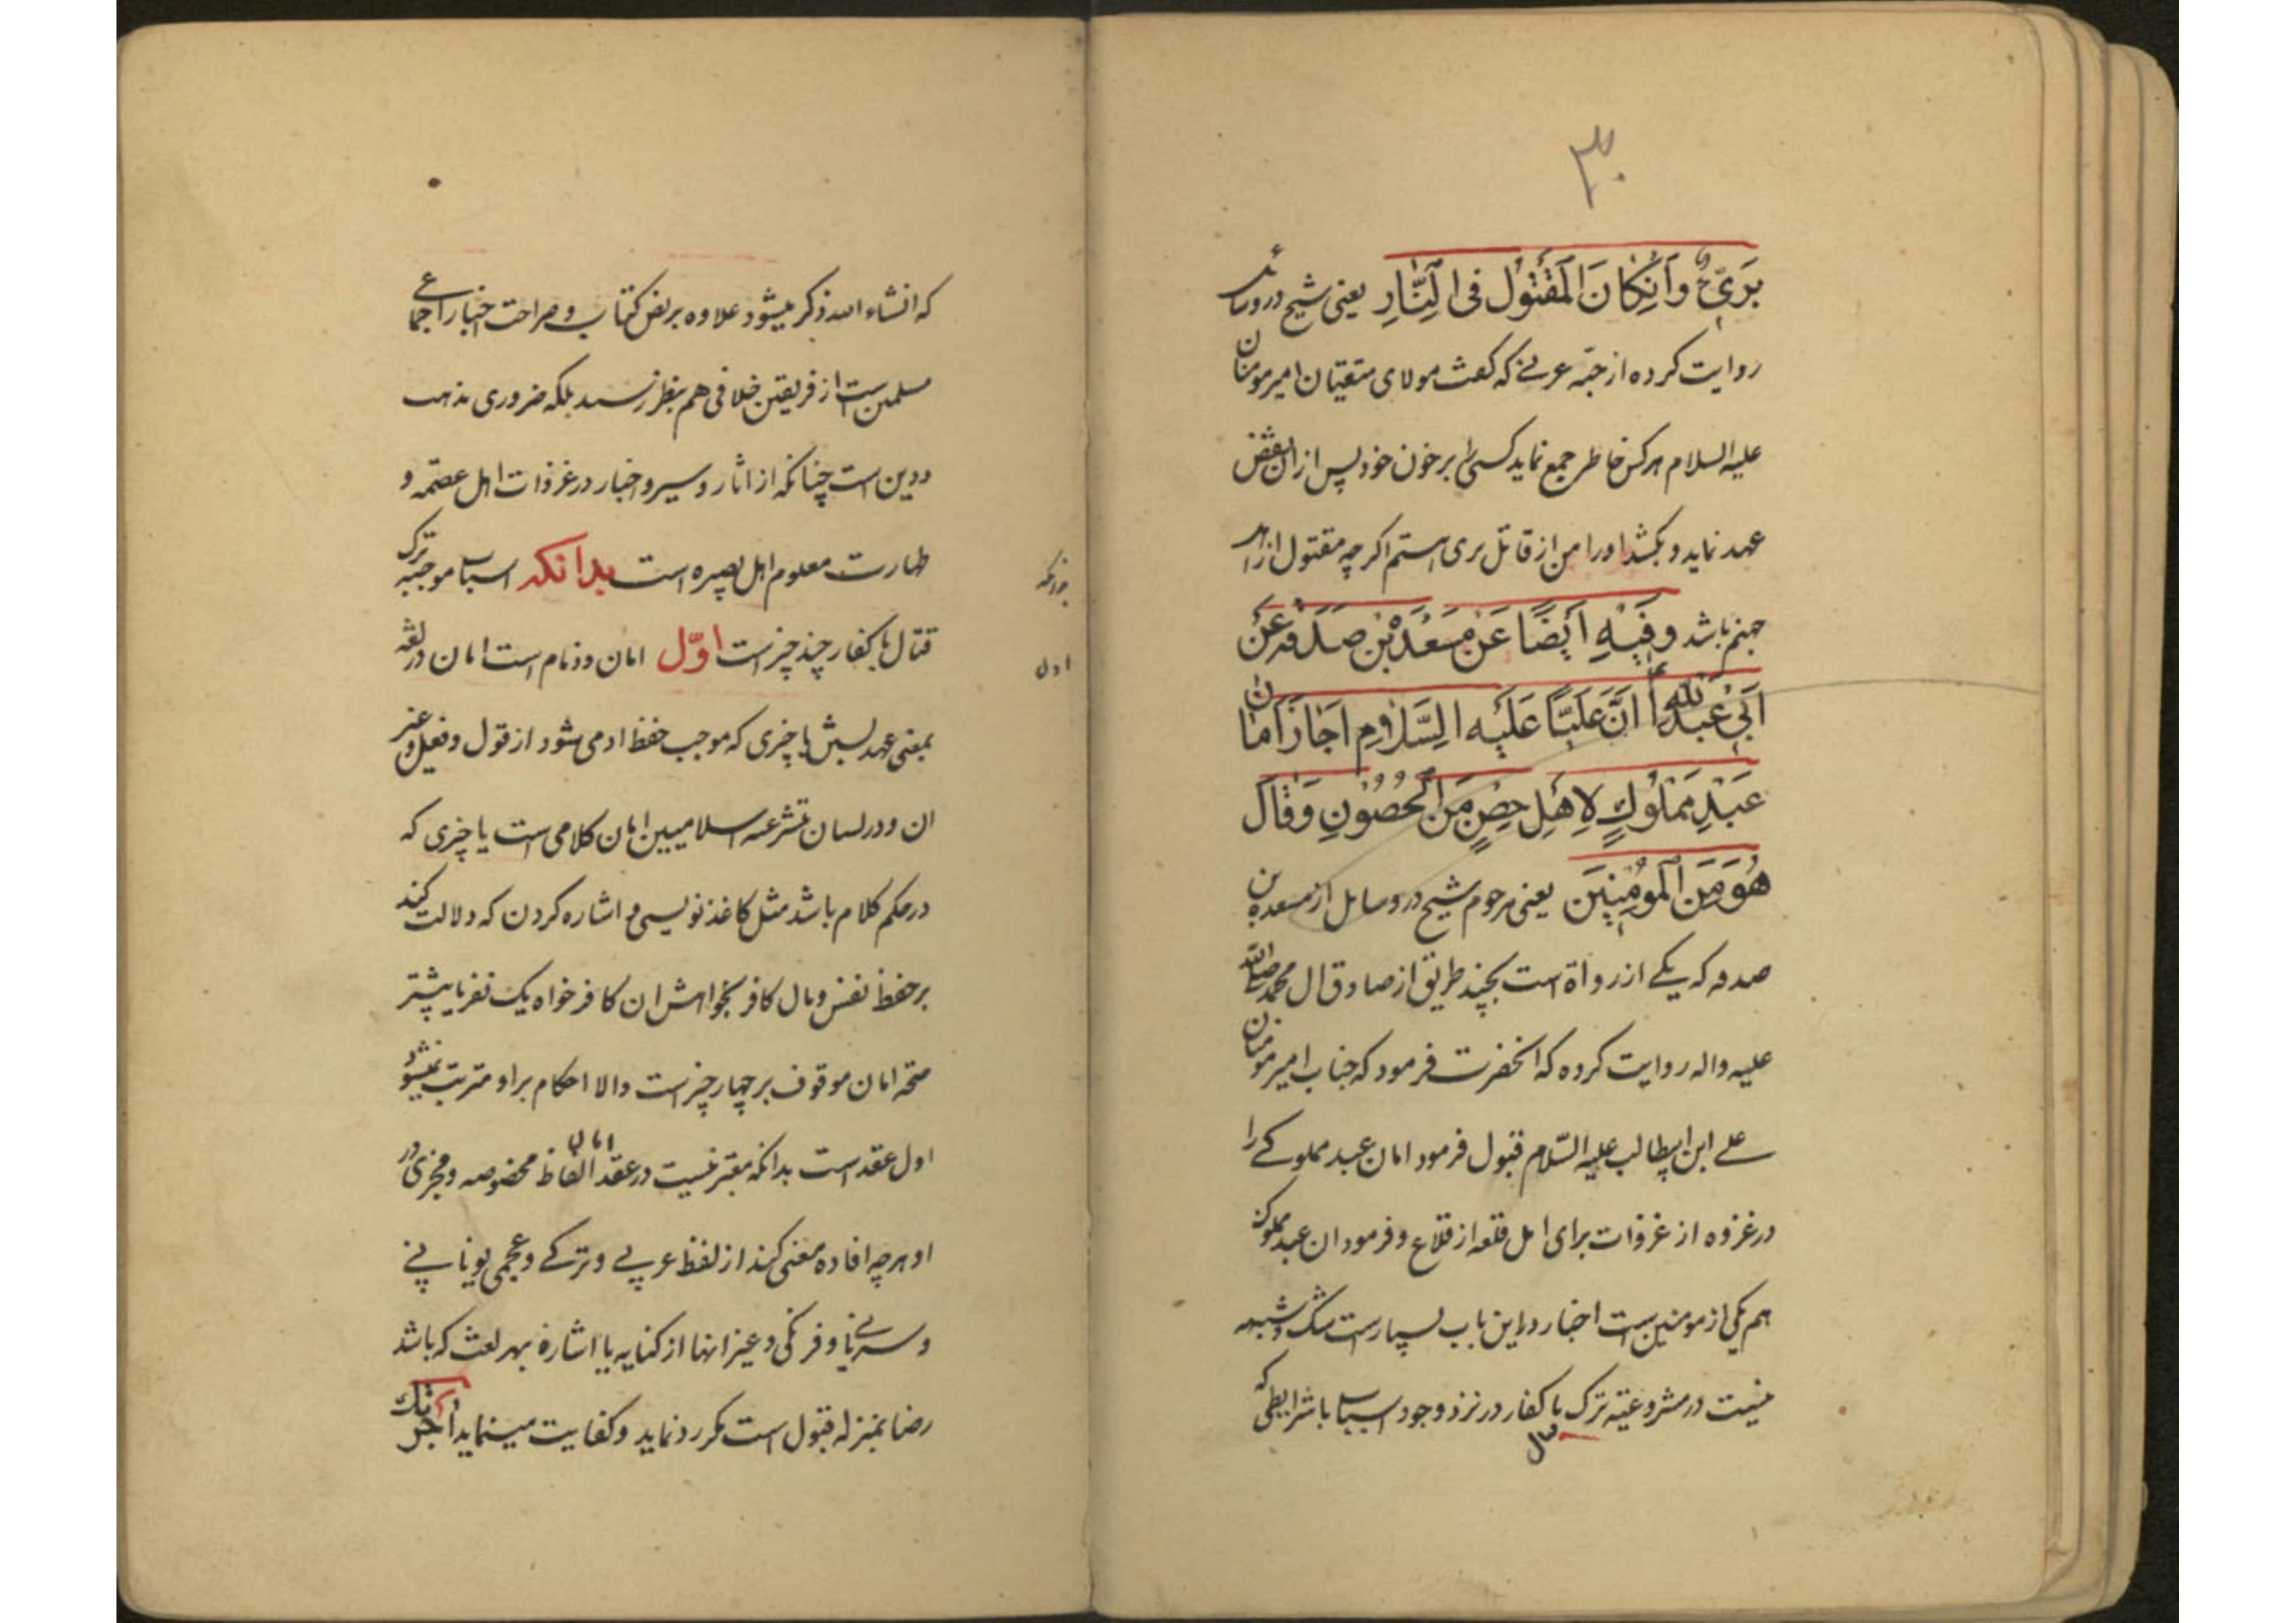 ۳۰
بَرَیٌ وَاِنکانَ المَقتُول فِی النّارِ یعنی شیخ در وسائل
روایت کرده از حبّه عرنے که کفت مولای متقیان امیر مومنان
علیه السلام هر کس خاطر جمع نماید کسی را بر خون خود پس از ان نقض
عهد نماید و بکشد او را من از قاتل بری استم اکر چه مقتول از اهل
جهنم باشد وَفیهِ اَیضًا عَن مَسعَدَة بن صَدَقَه عَن
اَبی عَبدِ الله ع اَنَّ عَلیًّا عَلَیهِ السَّلامِ اَجازَ اَمانَ
عَبدٍ مَملوُکٍ لِاَهلِ حِصنٍ مَنَ الحُصُونِ وَقالَ
هُوَ مَنَ المُومِنینَ یعنی مرحوم شیخ در وسایل از مسعدة بن
صدقه که یکے از رواة است بچند طریق از صادق ال محمد صلی الله
علیه واله روایت کرده که انحضرت فرمود که جناب امیر مومنان
علے ابن ابیطالب علیه السّلام قبول فرمود امان عبد مملوکے را
در غزوه از غزوات برای اهل قلعه از قلاع و فرمود ان عبد مملوک
هم یکی از مومنین است اخبار در این باب بسیار است شک و شبهه
نیست در مشروعیّة ترک قتال با کفار در نزد وجود اسباب با شرایطی که
که انشاء الله ذکر میشود علاوه بر نص کتاب و صراحت اخبار اجماعی
مسلمین است از فریقین خلافی هم بنظر نرسید بلکه ضروری مذهب
و دین است چنانکه از اثار و سیر و اخبار در غزوات اهل عصمة و
طهارت معلوم اهل بصیره است بدانکه اسباب موجبه ترک
بدانکه
قتال با کفار چند چیز است اوّل امان و زمام است امان در لغه
اول
بمعنی عهد بستن با چیزی که موجب حفظ ادمی شود از قول و فعل و غیر
ان و در لسان متشرعه اسلامیین امان کلامی است یا چیزی که
در حکم کلام باشد مثل کاغذ نویسی و اشاره کردن که دلالت کند
بر حفظ نفس و مال کافر بخواهش ان کافر خواه یک نفر یا بیشتر
صحّه امان موقوف بر چهار چیز است والا احکام بر او مترتب نمیشود
اول عقد است بدانکه معتبر نیست در عقد امان الفاظ مخصوصه و مجزی در
او هر چه افاده معنی کند از لفظ عربے و ترکے و عجمی یونانے
و سریانے و فرنکی و غیر انها از کنایه یا اشارة بهر لغت که باشد
رضا بمنزله قبول است مکر رد نماید و کفایت مینماید